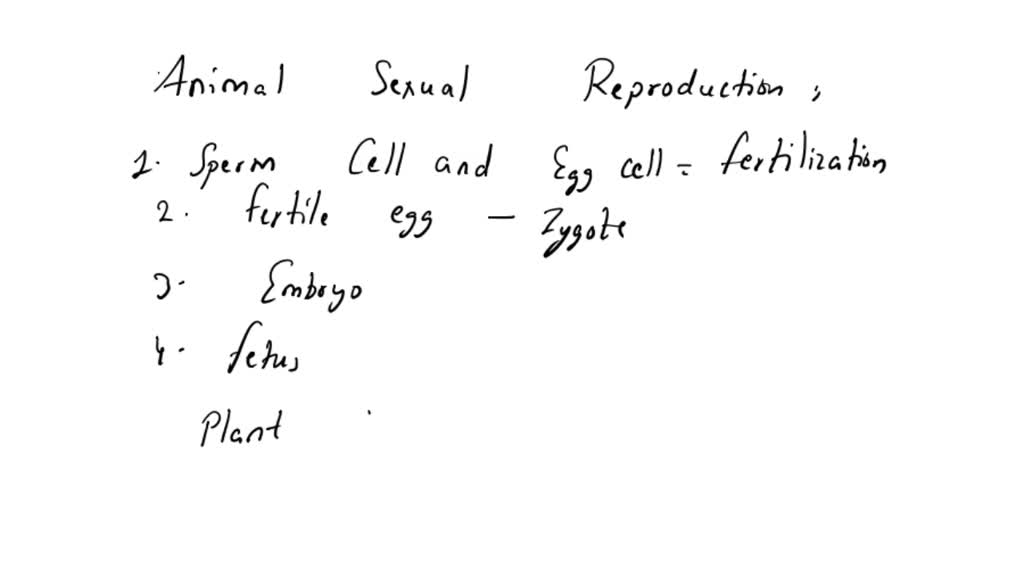 Animal Sexual Reproduction,
1. Sperm Cell and Egg cell = fertilization
2. fertile egg – Zygote
3. Embryo
4. fetus
Plant